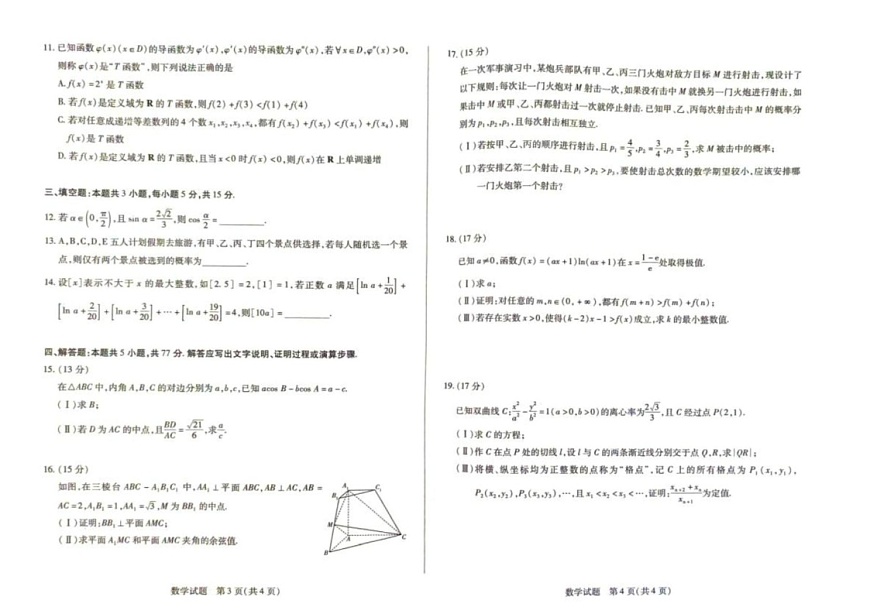 11. 已知函数φ(x)(x∈D)的导函数为φ'(x),φ'(x)的导函数为φ"(x),若∀x∈D,φ"(x)>0,
则称φ(x)是“T函数”,则下列说法正确的是
A. f(x)=2ˣ是T函数
B. 若f(x)是定义域为R的T函数,则f(2)+f(3)<f(1)+f(4)
C. 若对任意成递增等差数列的4个数x₁,x₂,x₃,x₄,都有f(x₂)+f(x₃)<f(x₁)+f(x₄),则
f(x)是T函数
D. 若f(x)是定义域为R的T函数,且当x<0时f(x)<0,则f(x)在R上单调递增
三、填空题:本题共3小题,每小题5分,共15分.
12. 若α∈(0,π/2),且sin α=2√2/3,则cos α/2=______.
13. A,B,C,D,E五人计划假期去旅游,有甲、乙、丙、丁四个景点供选择,若每人随机选一个景
点,则仅有两个景点被选到的概率为______.
14. 设[x]表示不大于x的最大整数,如[2.5]=2,[1]=1,若正数a满足[ln a+1/20]+
[ln a+2/20]+[ln a+3/20]+⋯+[ln a+19/20]=4,则[10a]=______.
四、解答题:本题共5小题,共77分.解答应写出文字说明、证明过程或演算步骤.
15. (13分)
在△ABC中,内角A,B,C的对边分别为a,b,c,已知acos B-bcos A=a-c.
(Ⅰ)求B;
(Ⅱ)若D为AC的中点,且BD/AC=√21/6,求a/c.
16. (15分)
如图,在三棱台ABC-A₁B₁C₁中,AA₁⊥平面ABC,AB⊥AC,AB=
AC=2,A₁B₁=1,AA₁=√3,M为BB₁的中点.
(Ⅰ)证明:BB₁⊥平面AMC;
(Ⅱ)求平面A₁MC和平面AMC夹角的余弦值.
A₁
C₁
B₁
M
A
C
B
数学试题 第3页(共4页)
17. (15分)
在一次军事演习中,某炮兵部队有甲、乙、丙三门火炮对敌方目标M进行射击,现设计了
以下规则:每次让一门火炮对M射击一次,如果没有击中M就换另一门火炮进行射击,如
果击中M或甲、乙、丙都射击过一次就停止射击.已知甲、乙、丙每次射击击中M的概率分
别为p₁,p₂,p₃,且每次射击相互独立.
(Ⅰ)若按甲、乙、丙的顺序进行射击,且p₁=4/5,p₂=3/4,p₃=2/3,求M被击中的概率;
(Ⅱ)若安排乙第二个射击,且p₁>p₂>p₃,要使射击总次数的数学期望较小,应该安排哪
一门火炮第一个射击?
18. (17分)
已知a≠0,函数f(x)=(ax+1)ln(ax+1)在x=1-e/e处取得极值.
(Ⅰ)求a;
(Ⅱ)证明:对任意的m,n∈(0,+∞),都有f(m+n)>f(m)+f(n);
(Ⅲ)若存在实数x>0,使得(k-2)x-1>f(x)成立,求k的最小整数值.
19. (17分)
已知双曲线C:x²/a²-y²/b²=1(a>0,b>0)的离心率为2√3/3,且C经过点P(2,1).
(Ⅰ)求C的方程;
(Ⅱ)作C在点P处的切线l,设l与C的两条渐近线分别交于点Q,R,求|QR|;
(Ⅲ)将横、纵坐标均为正整数的点称为“格点”,记C上的所有格点为P₁(x₁,y₁),
P₂(x₂,y₂),P₃(x₃,y₃),⋯,且x₁<x₂<x₃<⋯,证明:xₙ₊₂+xₙ/xₙ₊₁为定值.
数学试题 第4页(共4页)